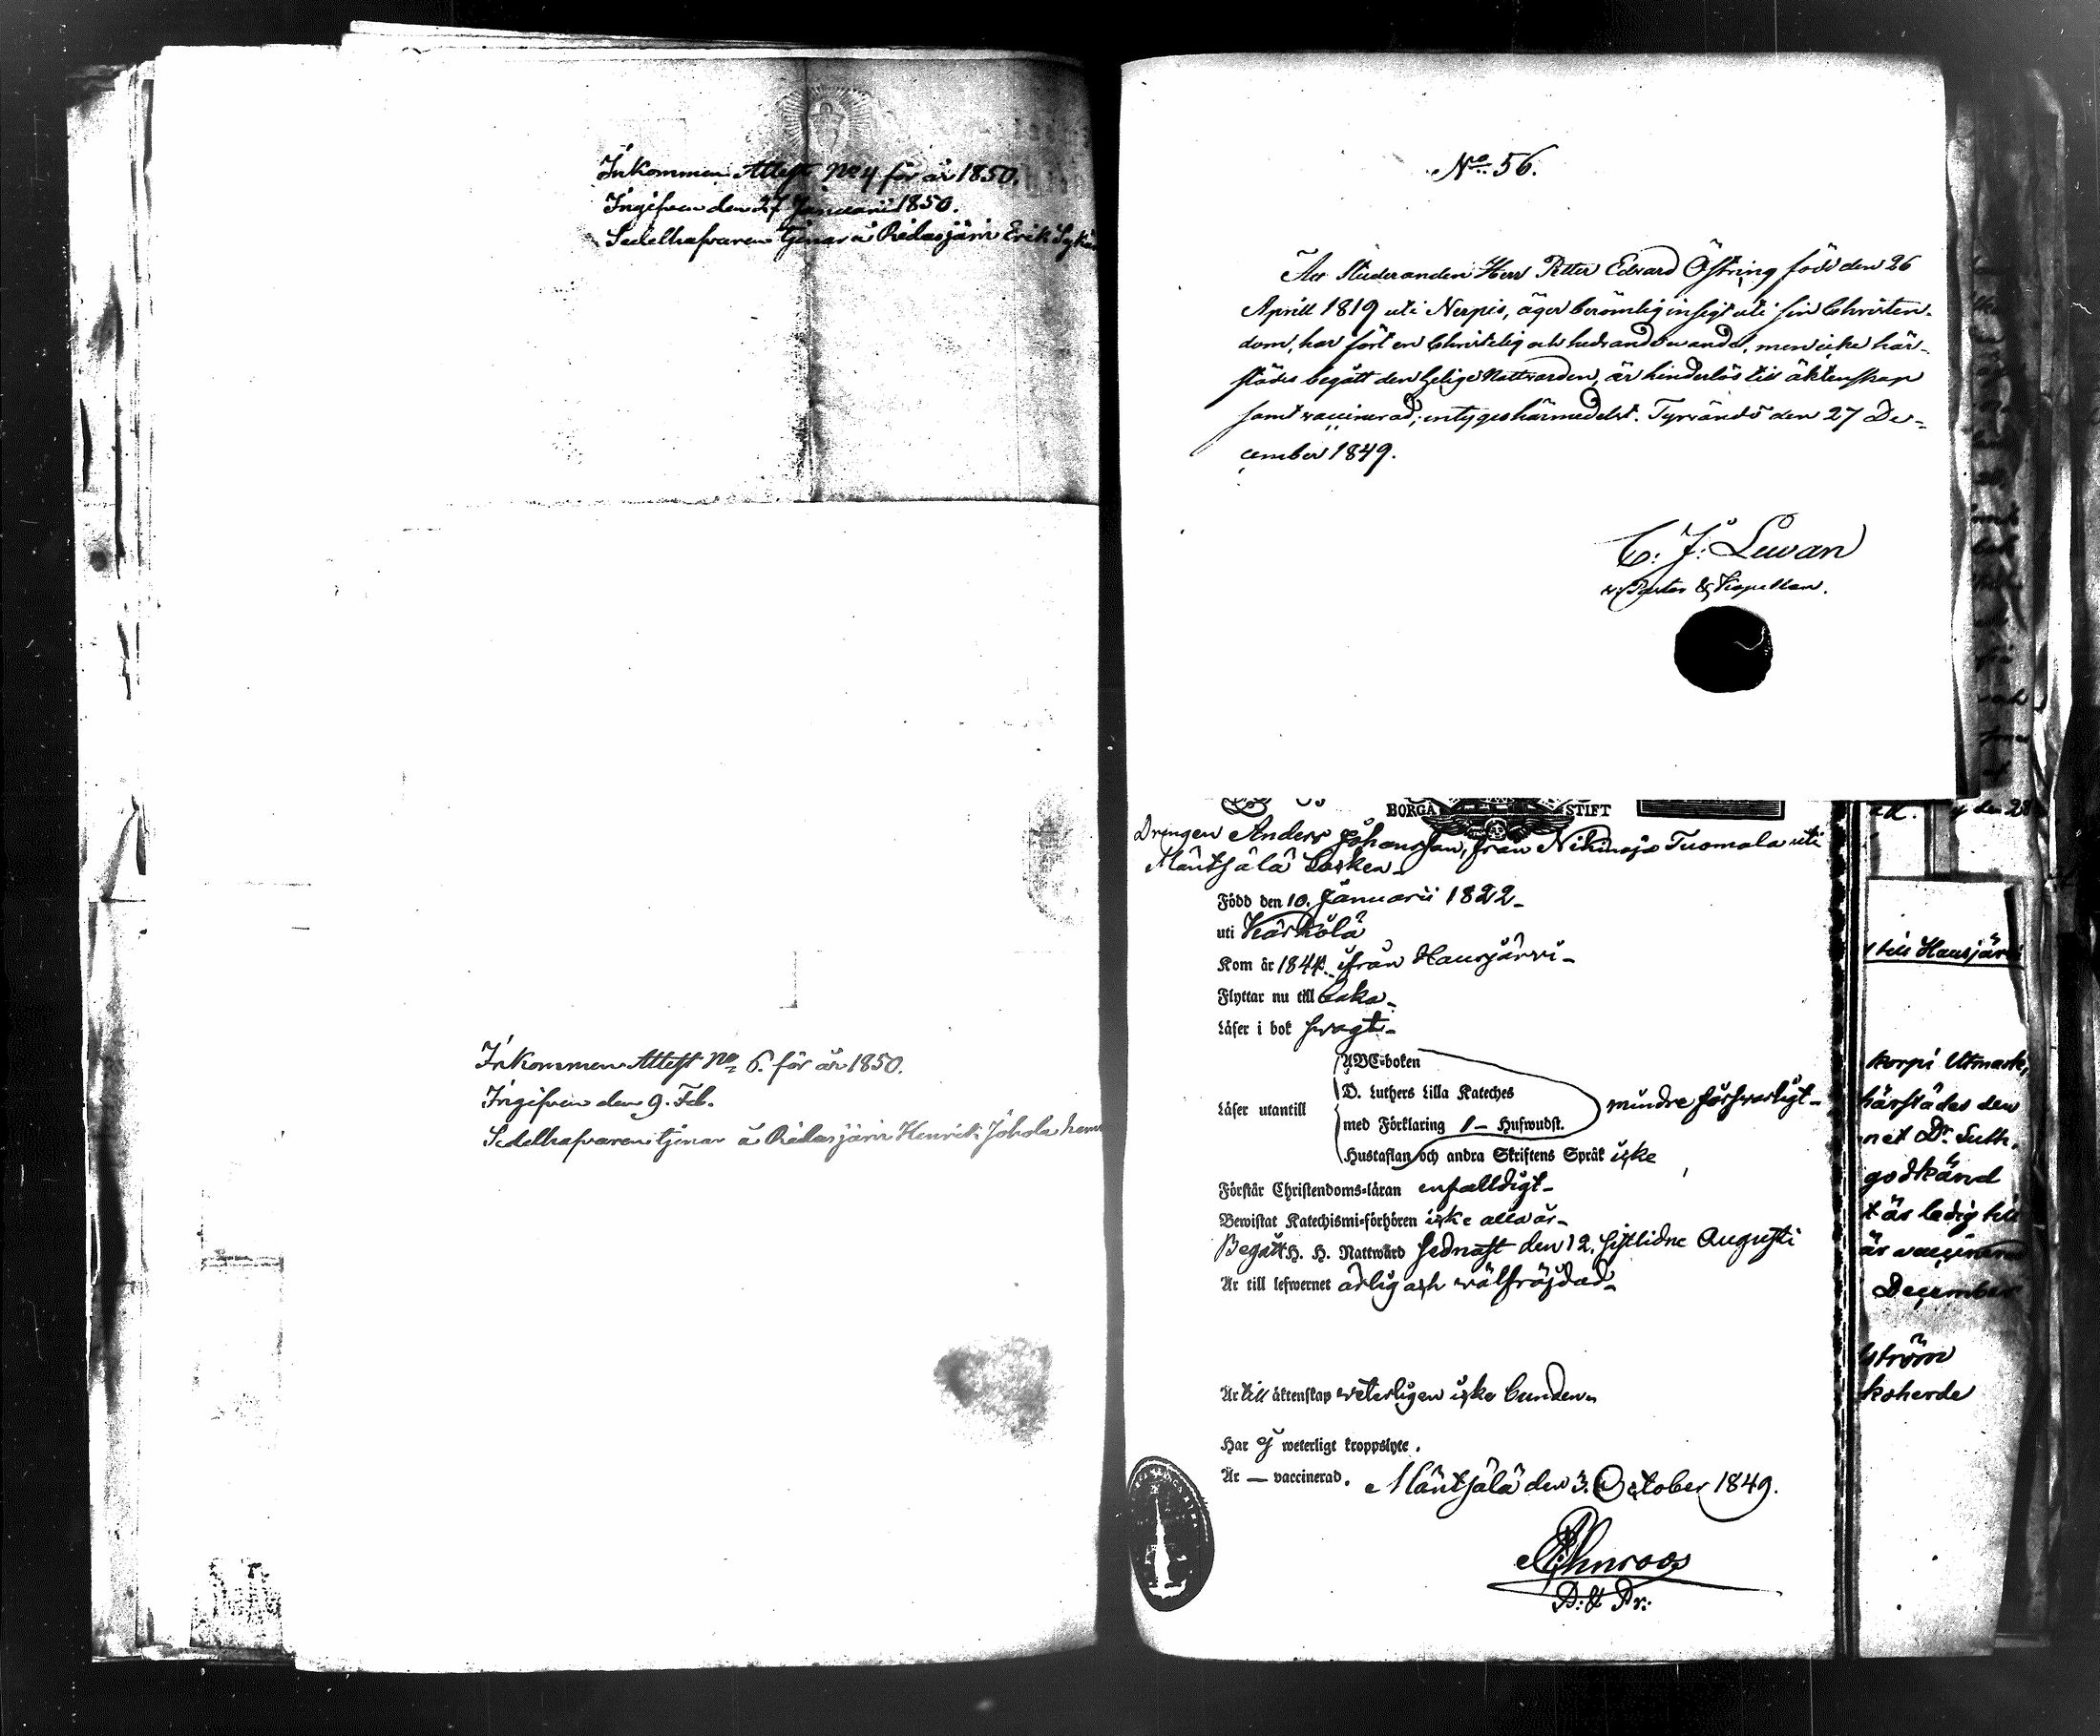 Inkommen Attest No 4 för år 1850.
Ingifven den 27 Januari 1850.
Sedelhafvaren tjenar å Ridasjärvi Erik
Inkommen Attest No 6. för år 1850.
Ingifven den 9. Feb.
Sedelhafvaren tjenar å Ridasjärvi Henrik Johola
No 56.
Att Studeranden Herr Petter Edvard Östring född den 26
Aprill 1819 uti Nerpis, äger berömlig insigt uti sin Christen-
dom, har fört en Christelig och hedrande vandel, men icke här-
städes begått den helige Nattvarden, är hinderlös till äktenskap
samt vaccinerad; intygas härmedelst. Tyrvändö den 27 De-
cember 1849.
C. J. Levan
v. Pastor & Kapellan.
BORGÅ STIFT
Drengen Anders Johansson, från Nikinoja Tuomala uti
Mäntsälä Socken
Född den 10. Januarii 1822
uti Kärkölä
Kom år 1844 ifrån Hausjärvi
Flyttar nu till
Läser i bok svagt
ABC-boken
D. Luthers Lilla Kateches
Läser utantill
mindre försvarligt
med Förklaring 1 — Hufwudst.
Hustaflan och andra Skriftens Språk icke
Förstår Christendoms-läran enfalldigt
Bewistat Katechismi-förhören icke alla år
Begått H. H. Nattward sednast den 12. sistlidne Augusti
Är till lefwernet ärlig och välfräjdad
Är till äktenskap veterligen icke bunden
Har ej weterligt kroppslyte.
Är — vaccinerad.
Mäntsälä den 3. October 1849.
Ahnroos
till Hausjärvi
korpi Utmark,
härstädes den
godkänd
är ledig till
är vaccinerad
December
ström
koherde